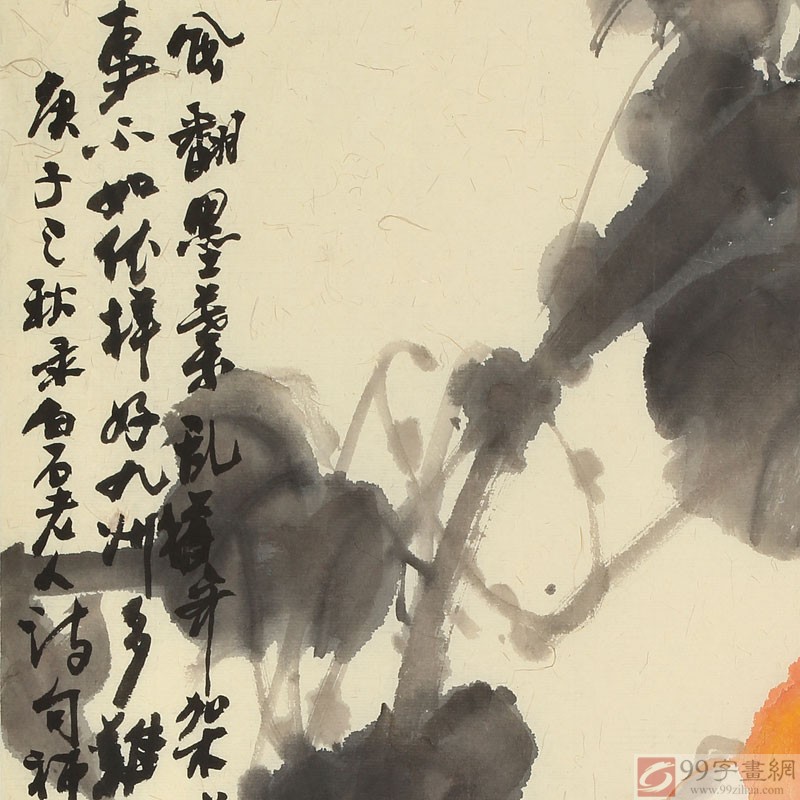 风翻墨葉乱猶齐架
事不如依样好九州多難
庚子之秋录白石老人诗句
99字畫網
www.99zihua.com